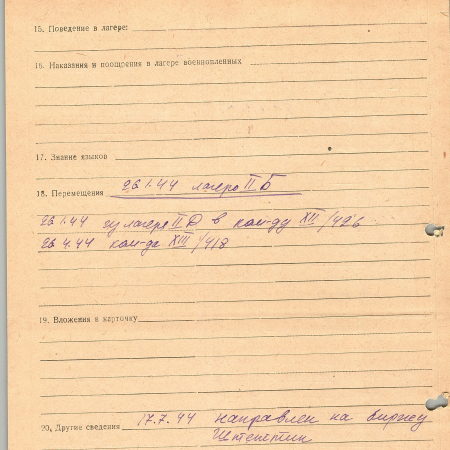 15. Поведение в лагере:
16. Наказания и поощрения в лагере военнопленных
17. Знание языков
18. Перемещения 26.1.44 лагерь II Б
26.1.44 из лагеря II Д в ком-ду XII/426
26.4.44 ком-да XIII/418
19. Вложения в карточку
20. Другие сведения 17.7.44 направлен на биржу
Штеттин